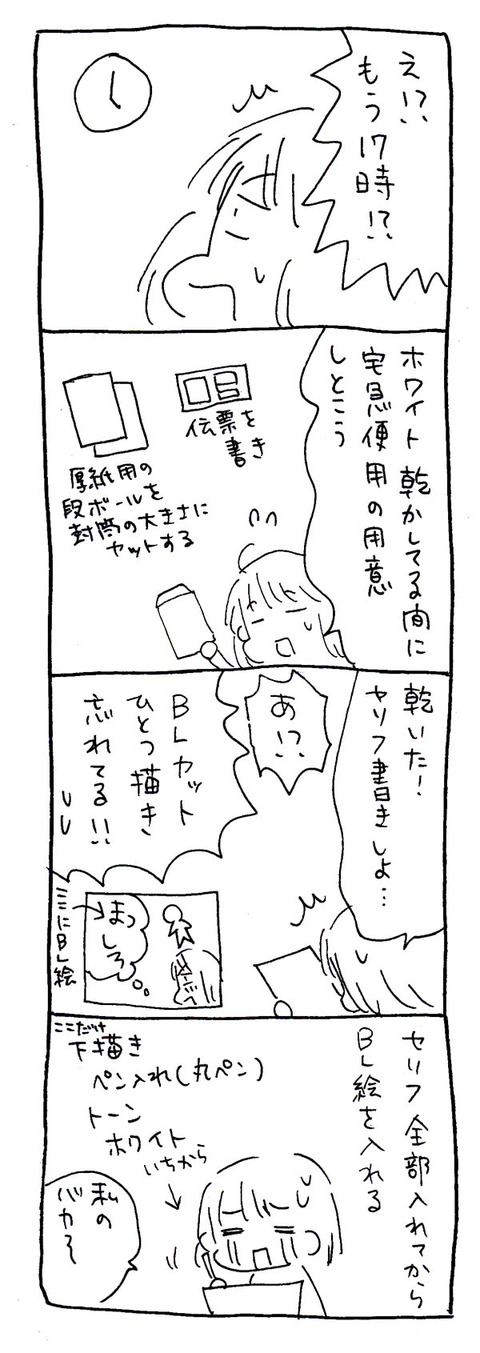 え!?
もう17時!?
ホワイト乾かしてる間に
宅急便用の用意
しとこう
伝票を
書き
厚紙用の
段ボールを
封筒の大きさに
カットする
乾いた!
セリフ書きしよ…
あ!?
BLカット
ひとつ描き
忘れてる!!
まっ
しろ
ここにBL絵
セリフ全部入れてから
BL絵を入れる
ここだけ
下描き
ペン入れ(丸ペン)
トーン
ホワイト
いちから
私の
バカ〜